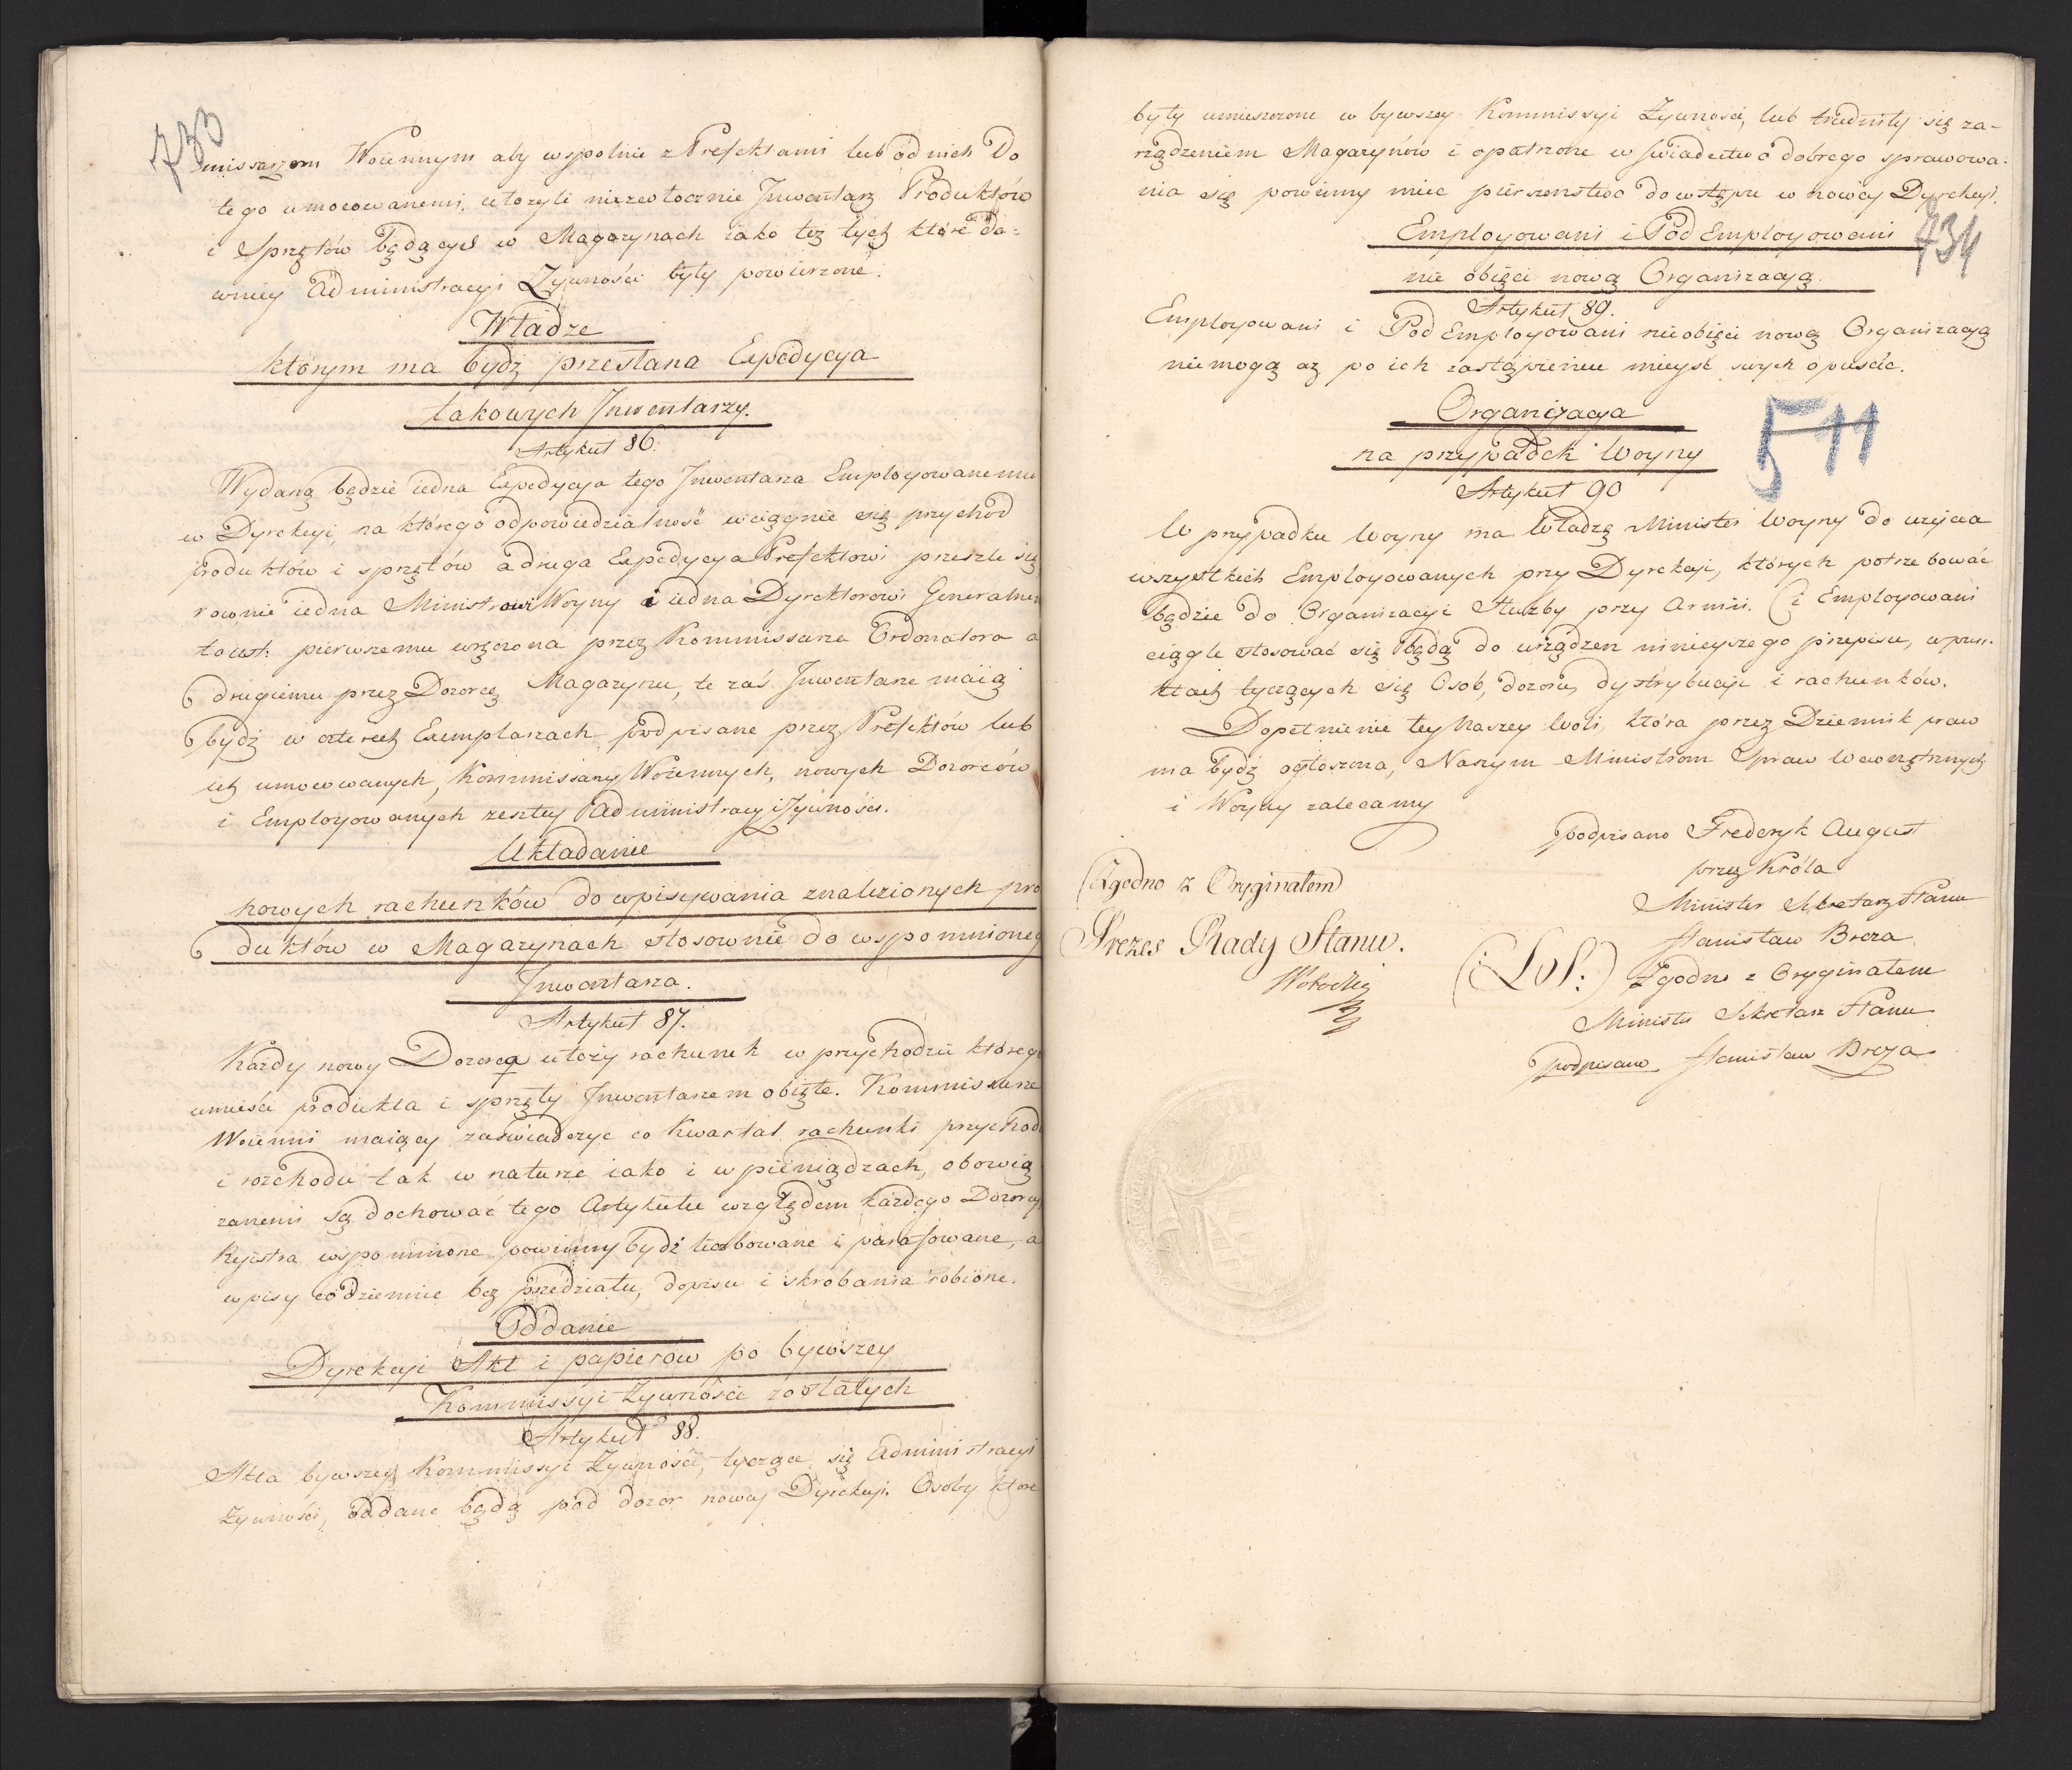 733
missarzom Woiennym aby wspolnie z Prefektami lub od nich Do
tego umocowanemi, ułożyli niezwłocznie Inwentarz Produktów
i Sprzętów będących w Magazynach iako też tych które da=
wniey Administracyi Żywności były powierzone.
Władze
którym ma bydź przesłana Expedycya
takowych Inwentarzy.
Artykuł 86.
Wydaną będzie iedna Expedycya tego Inwentarza Employowanemu
w Dyrekcyi, na którego odpowiedzialność wciągnie się przychod
produktów i sprzętów a druga Expedycya Prefektowi prześle się
rownie iedna Ministrowi Woyny i iedna Dyrektorowi Generalnem
to iest: pierwszemu wręczona przez Kommissarza Ordonatora a
drugiemu przez Dozorcę Magazynu, te zaś Inwentarze maią
bydź w czterech Exemplarzach podpisane przez Prefektów lub
ich umocowanych, Kommissarzy Woiennych, nowych Dozorców
i Employowanych zeszłey Administracyi Żywności.
Układanie
nowych rachunków do wpisywania znalezionych pro
duktów w Magazynach stosownie do wspomnioneg
Inwentarza.
Artykuł 87.
Każdy nowy Dozorca ułoży rachunek w przychodzie którego
umieści produkta i sprzęty Inwentarzem obięte. Kommissarze
Woienni maiący zaświadczyc co Kwartał rachunki przychod
i rozchodu tak w naturze iako i w pieniądzach, obowią
zanemi są dochować tego Artykułu względem każdego Dozorcy
Rejestra wspomnione powinny bydź liczbowane i parafowane, a
wpisy codziennie bez przedziału, dopisu i skrobania robione.
Oddanie
Dyrekcyi Akt i papierow po bywszey
Kommissyi Żywności zostałych
Artykuł 88.
Akta bywszey Kommissyi Żywności, tyczące się Administracyi
Żywności, oddane będą pod dozór nowey Dyrekcyi. Osoby które
były umieszczone w bywszey Kommissyi Żywności, lub trudniły się za-
rządzeniem Magazynów i opatrzone w świadectwo dobrego sprawowa-
nia się powinny miec pierszenstwo do wstępu w nowéy Dyrekcyi.
734
Employowani i Pod Employowani
nie obięci nową Organizacyą.
Artykuł 89.
Employowani i Pod Employowani nieobięci nową Organizacyą
niemogą aż po ich zastąpieniu mieysc swych opuścić.
Organizacya
na przypadek Woyny
511
Artykuł 90
W przypadku Woyny ma Władzę Minister Woyny do użycia
wszystkich Employowanych przy Dyrekcyi, których potrzebować
będzie do Organizacyi Służby przy Armii. i Employowani
ciągle stosować się będą do urządzen ninieyszego przepisu, w pun-
ktach tyczących się Osob, dozoru, dystrybucyi i rachunków.
Dopełnienie tey Naszey Woli, która przez Dziennik praw
ma bydź ogłoszona, Naszym Ministrom Spraw Wewnętrznych
i Woyny zalecamy
podpisano Frederyk August
przez Króla
Minister Sekretarz Stanu
Stanisław Breza
(:LS:) Zgodno z Oryginałem
Minister Sekretarz Stanu
podpisano Stanisław Breza
Zgodno z Oryginałem
Prezes Rady Stanu.